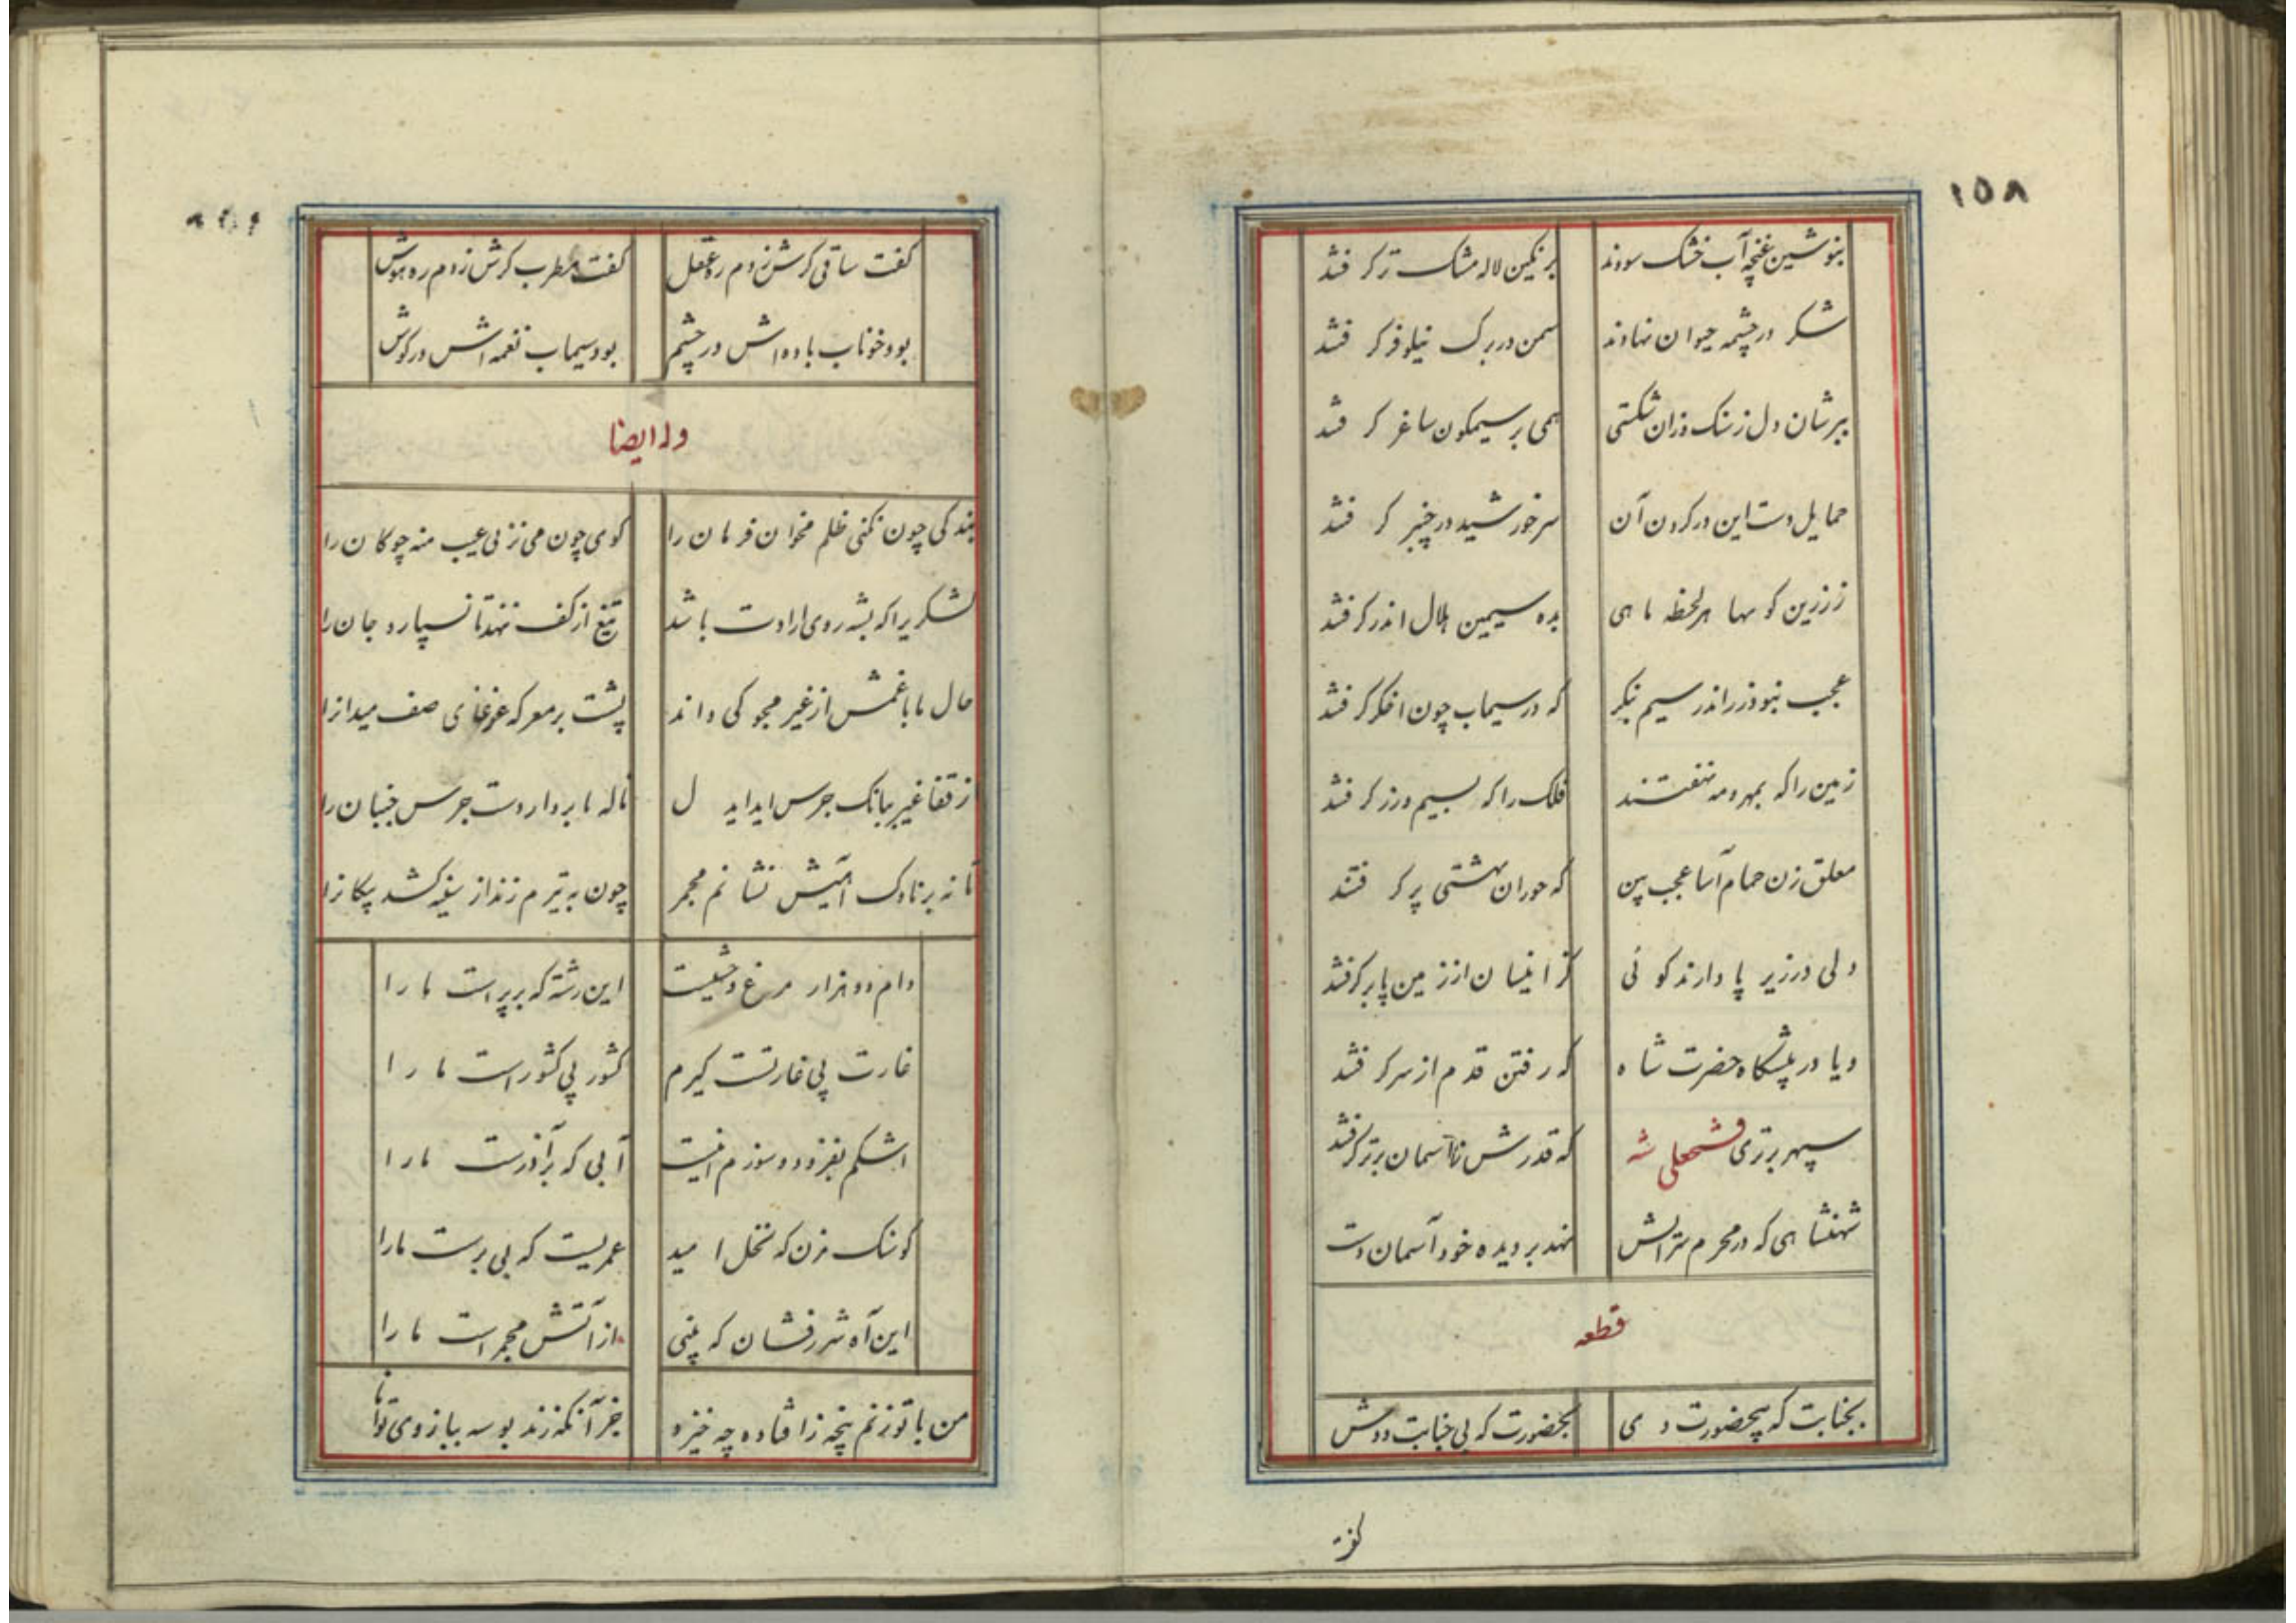 ۱۵۸
بنوشین غنچه آب خشک سودند برنگین لاله مشک تر کرفتند
شکر در چشمه حیوان نهادند سمن در برک نیلوفر کرفتند
ببرشان دل ز سنک و زان شکستی همی بر سیمکون ساغر کرفتند
حمایل دست این در کردن آن سر خورشید در چنبر کرفتند
ز زرین کو سها هر لحظه ماهی بده سیمین هلال اندر کرفتند
عجب نبود زر اندر سیم بنکر که در سیماب چون اخکر کرفتند
زمین را که بمهر و مه نهفتند فلک را که بسیم و زر کرفتند
معلق زن حمام آسا عجب بین که حوران بهشتی پر کرفتند
ولی در زیر پا دارند کوئی کز اینسان از زمین پا بر کرفتند
و یا در پیشکاه حضرت شاه که رفتن قدم از سر کرفتند
سپهر برتری فتحعلی شه که قدرش تا آسمان برتر کرفتند
شهنشاهی که در محرم سرایش نهد بر دیده خود آسمان دست
قطعه
بجنابت که بیحضورت دی بحضورت که بی جنابت دوش
کفت
کفت ساقی کرش زدم ره عقل کفت مطرب کرش زدم ره هوش
بود خوناب باده اش در چشم بود سیماب نغمه اش در کوش
وله ایضا
بندکی چون نکنی ظلم مخوان فرمان را کوی چون می زنی عیب منه چوکان را
لشکریرا که بشه روی ارادت باشد تیغ از کف ننهد تا نسپارد جان را
حال ما با غمش از غیر مجو کی داند پشت بر معرکه غوغای صف میدانرا
ز قفا غیر ببانک جرس اید اید ل ناله ما بردار دست جرس جنبان را
تا نه بر ناوک آتیش نشانم مجمر چون به تیرم زند از سینه کشد پیکانرا
دام دو هزار مرغ وحشیست این رشته که بر پر است ما را
غارت پی غارتست کیرم کشور پی کشور است ما را
اشکم بفزود و سوزم اینست آبی که بر آذرست ما را
کو سنک مزن که نخل امید عمریست که بی برست ما را
این آه شررفشان که بینی از آتش مجمر است ما را
من با تو زنم پنجه ز افتاده چه خیزد جز آنکه زند بوسه ببازوی توانا